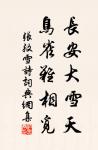 長安大雪天
鳥雀難相覓
張救雪詩詞典網集